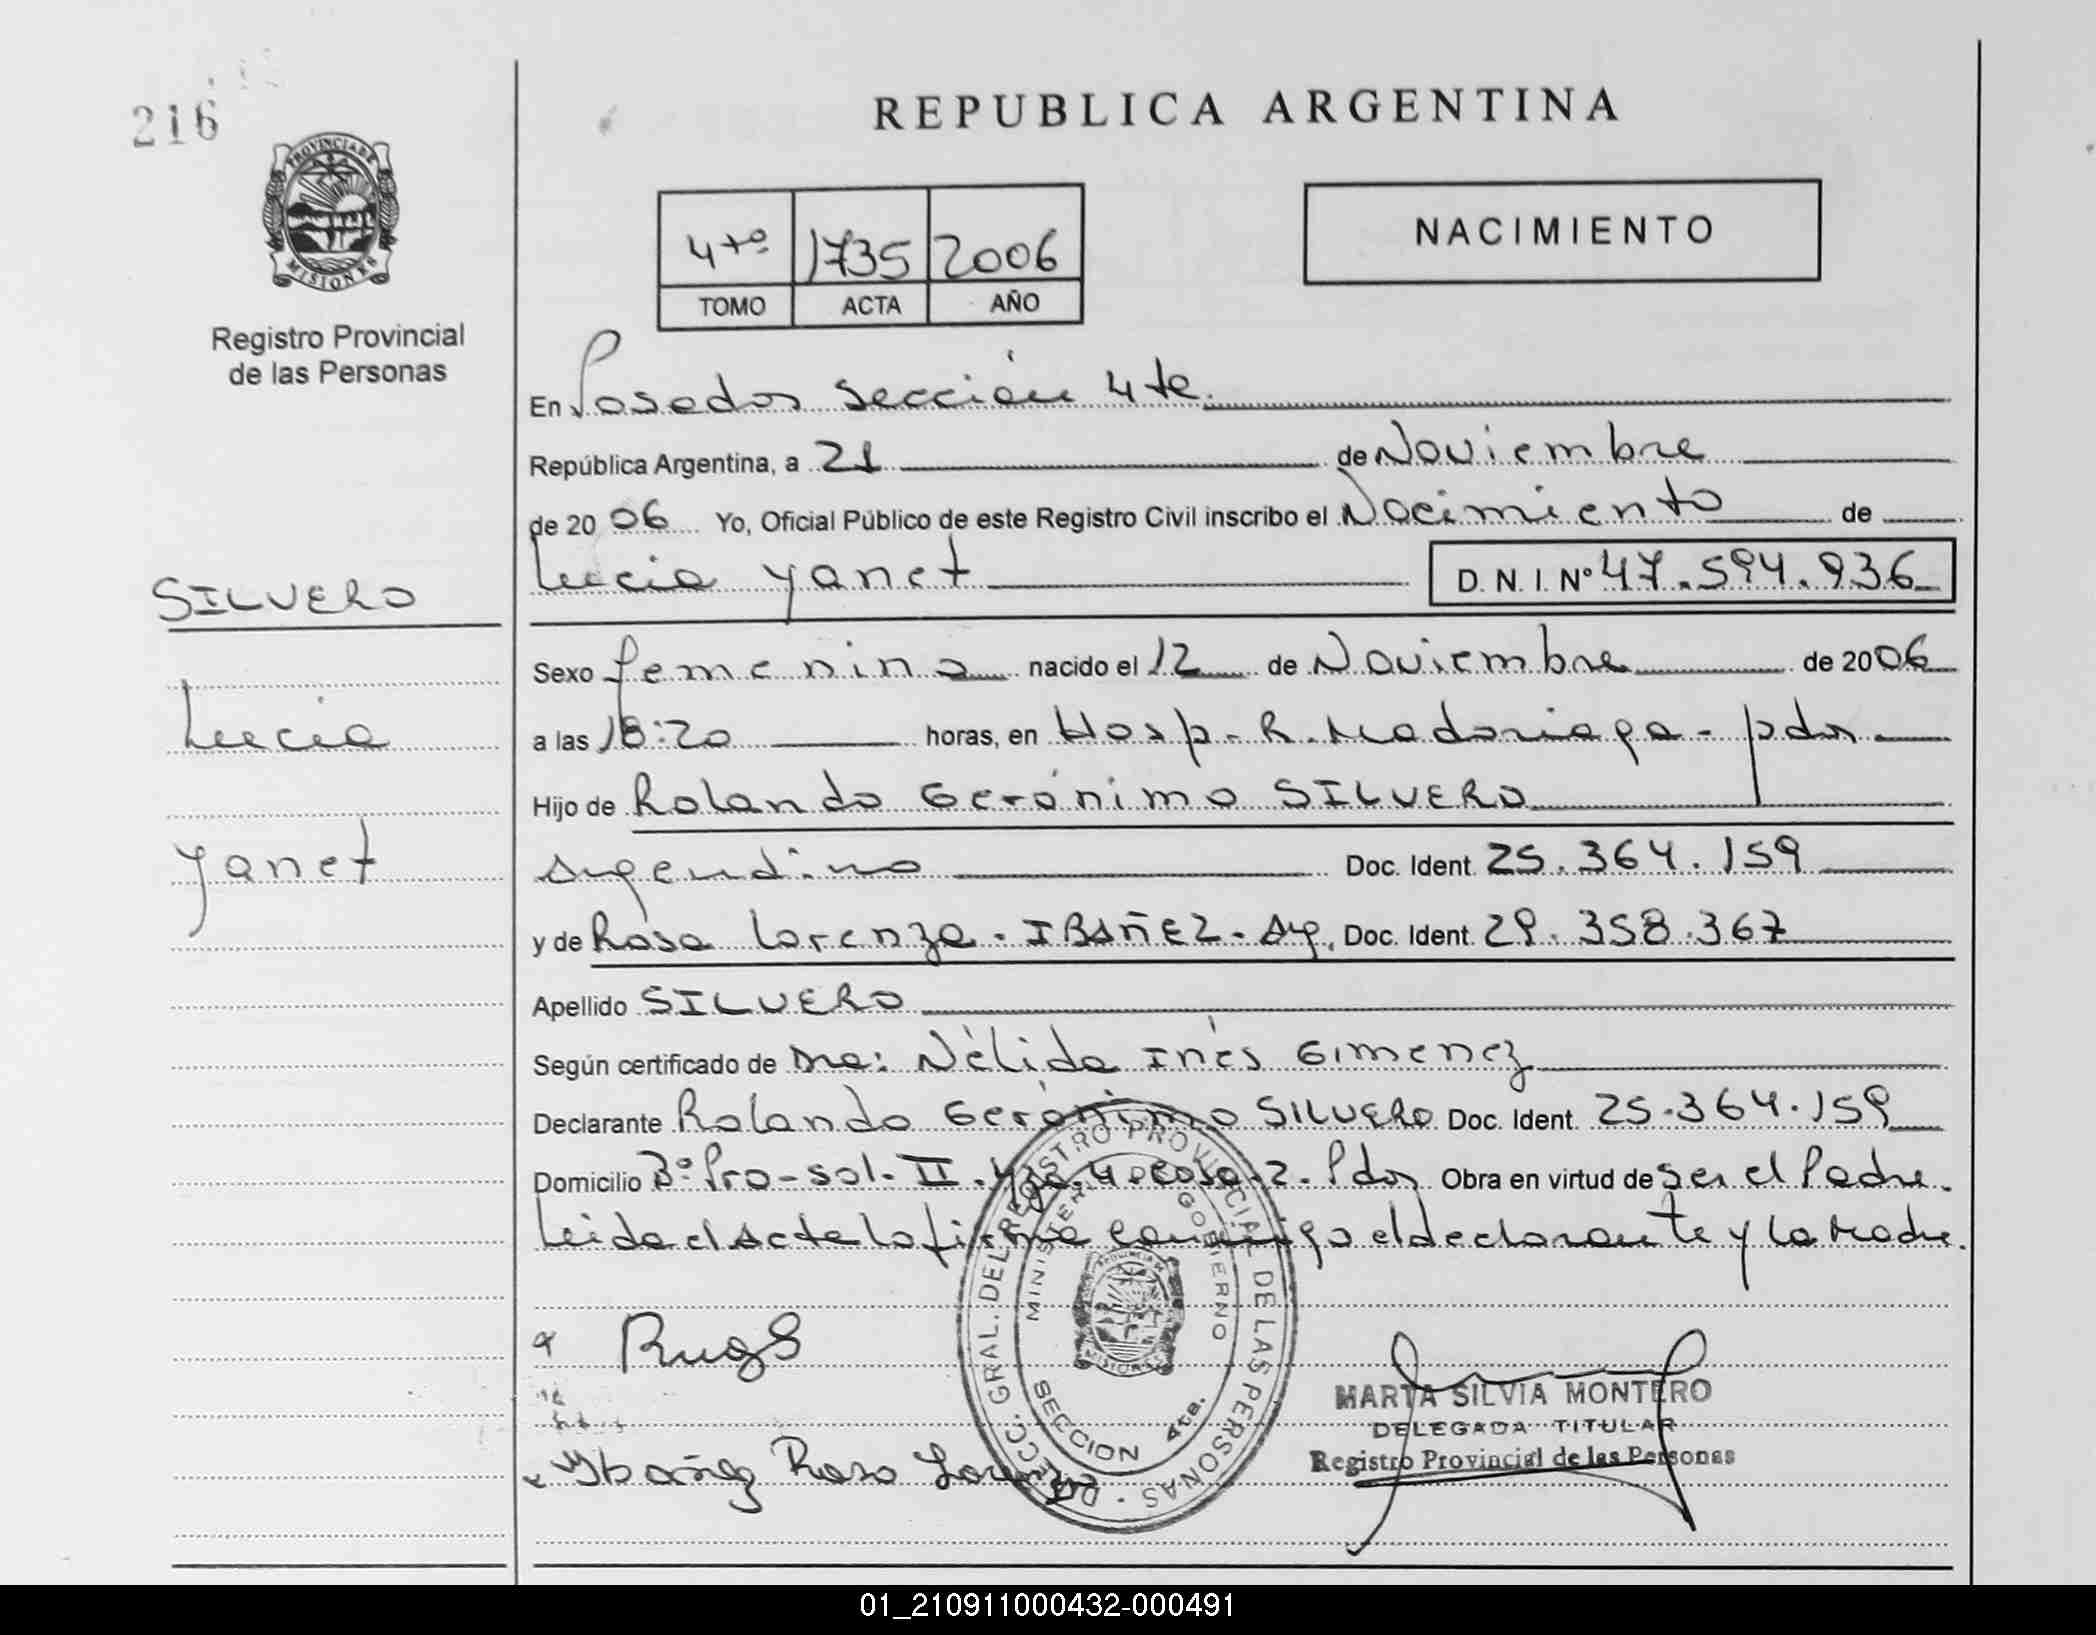 216
REPUBLICA ARGENTINA
PROVINCIA DE
MISIONES
Registro Provincial
de las Personas
4to 1735 2006
TOMO ACTA AÑO
NACIMIENTO
En Posadas Sección 4ta.
República Argentina, a 21 de Noviembre
de 2006 Yo, Oficial Público de este Registro Civil inscribo el Nacimiento de
Lucia Yanet D. N. I. Nº 47.594.936
SILVERO
Lucia
Yanet
Sexo femenino nacido el 12 de Noviembre de 2006
a las 18:20 horas, en Hosp. R. Madariaga - pdas
Hijo de Rolando Gerónimo SILVERO
Argentino Doc. Ident. 25.364.159
y de Rosa Lorenza - IBAÑEZ - Arg. Doc. Ident. 29.358.367
Apellido SILVERO
Según certificado de Dra: Nélida Inés Gimenez
Declarante Rolando Gerónimo SILVERO Doc. Ident. 25.364.159
Domicilio Bº Pro-sol. II. 4 casa 2. Pdas Obra en virtud de ser el Padre.
Leida el Acta la firma conmigo el declarante y la Madre.
DIRECC. GRAL. DEL REGISTRO PROVINCIAL DE LAS PERSONAS
MINISTERIO GOBIERNO
MISIONES
SECCION 4ta.
Ybañez Rosa Lorenza
MARTA SILVIA MONTERO
DELEGADA TITULAR
Registro Provincial de las Personas
01_210911000432-000491